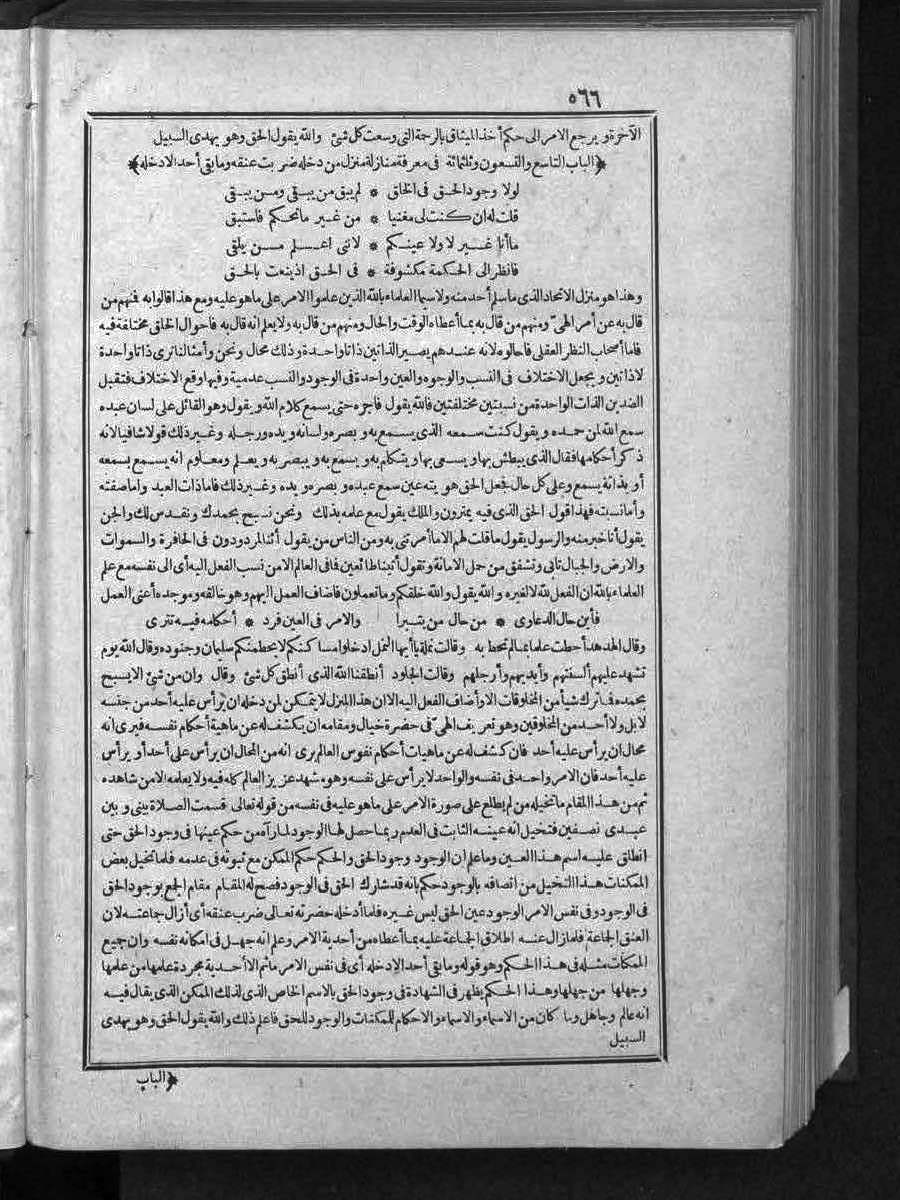 ٥٦٦
الآخرة ويرجع الامر الى حكم أخذ الميثاق بالرحمة التي وسعت كل شئ والله يقول الحق وهو يهدى السبيل
﴿الباب التاسع والتسعون وثلثمائة فى معرفة منازلة منزل من دخله ضربت عنقه وما بقى أحد الا دخله﴾
لولا وجود الحق فى الخلق * لم يبق من يبقى ومن يبقى
قلت له ان كنت لى مغنيا * من غير ما تحكم فاستبق
ما أنا غير لا ولا عينكم * لاننى اعلم من يلقى
فانظر الى الحكمة مكشوفة * فى الحق اذ ينعت بالحق
وهذا هو منزل الاتحاد الذى ما سلم أحد منه ولا سيما العلماء بالله الذين علموا الامر على ما هو عليه ومع هذا قالوا به فمنهم من
قال به عن أمر الهىّ ومنهم من قال به بما أعطاه الوقت والحال ومنهم من قال به ولا يعلم انه قال به فاحوال الخلق مختلفة فيه
فاما أصحاب النظر العقلى فاحالوه لانه عندهم يصير الذاتين ذاتا واحدة وذلك محال ونحن وأمثالنا نرى ذاتا واحدة
لا ذاتين ويجعل الاختلاف فى النسب والوجوه والعين واحدة فى الوجود والنسب عدمية وفيها وقع الاختلاف فتقبل
الضدين الذات الواحدة من نسبتين مختلفتين فالله يقول فاجره حتى يسمع كلام الله ويقول وهو القائل على لسان عبده
سمع الله لمن حمده ويقول كنت سمعه الذى يسمع به وبصره ولسانه ويده ورجله وغير ذلك قولا شافيا لانه
ذكر أحكامها فقال الذى يبطش بها ويسعى بها ويتكلم به ويسمع به ويبصر به ويعلم ومعلوم انه يسمع بسمعه
أو بذاته يسمع وعلى كل حال فجعل الحق هويته عين سمع عبده وبصره ويده وغير ذلك فاما ذات العبد واما صفته
وأما نسبته فهذا قول الحق الذى فيه يمترون والملك يقول مع علمه بذلك ونحن نسبح بحمدك ونقدس لك والجن
يقول أنا خير منه والرسول يقول ما قلت لهم الا ما أمرتنى به ومن الناس من يقول أئنا لمردودون فى الحافرة والسموات
والارض والجبال تأبى وتشفق من حمل الامانة وتقول أتينا طائعين فما فى العالم الا من نسب الفعل اليه أى الى نفسه مع علم
العلماء بالله ان الفعل لله لا لغيره والله يقول والله خلقكم وما تعملون فاضاف العمل اليهم وهو خالقه وموجده أعنى العمل
فأين حال الدعاوى * من حال من يتبرا والامر فى العين فرد * أحكامه فيه تترى
وقال الهدهد أحطت علما بما لم تحط به وقالت نملة يا أيها النمل ادخلوا مساكنكم لا يحطمنكم سليمان وجنوده وقال الله يوم
تشهد عليهم ألسنتهم وأيديهم وأرجلهم وقالت الجلود أنطقنا الله الذى أنطق كل شئ وقال وان من شئ الا يسبح
بحمده فما ترك شيأ من المخلوقات الا وأضاف الفعل اليه الا ان هذا المنزل لا يتمكن لمن دخله ان يرأس عليه أحد من جنسه
لا بل ولا أحد من المخلوقين وهو تعريف الهىّ فى حضرة خيال ومقامه ان يكشف له عن ماهية أحكام نفسه فيرى انه
محال ان يرأس عليه أحد فان كشف له عن ماهيات أحكام نفوس العالم يرى انه من المحال ان يرأس على أحد أو يرأس
عليه أحد فان الامر واحد فى نفسه والواحد لا يرأس على نفسه وهو مشهد عزيز العالم كله فيه ولا يعلمه الا من شاهده
ثم من هذا المقام ما تخيله من لم يطلع على صورة الامر على ما هو عليه فى نفسه من قوله تعالى قسمت الصلاة بينى وبين
عبدى نصفين فتخيل انه عينه الثابت فى العدم وبما حصل لها الوجود لما رآه من حكم عينها فى وجود الحق حتى
انطلق عليه اسم هذا العين وما علم ان الوجود وجود الحق والحكم حكم الممكن مع ثبوته فى عدمه فلما تخيل بعض
الممكنات هذا التخيل من اتصافه بالوجود حكم بانه قد شارك الحق فى الوجود فصح له المقام مقام الجمع بوجود الحق
فى الوجود وفى نفس الامر الوجود عين الحق ليس غيره فلما أدخله حضرته تعالى ضرب عنقه أى أزال جماعته لان
العنق الجماعة فلما زال عنه اطلاق الجماعة عليه بما أعطاه من أحدية الامر وعلم انه جهل فى امكانه نفسه وان جميع
الممكات مثله فى هذا الحكم وهو قوله وما بقى أحد الا دخله أى فى نفس الامر ما ثم الا أحدية مجردة علمها من علمها
وجهلها من جهلها وهذا الحكم يظهر فى الشهادة فى وجود الحق بالاسم الخاص الذى لذلك الممكن الذى يقال فيه
انه عالم وجاهل وما كان من الاسماء والاسماء والاحكام للممكنات والوجود للحق فاعلم ذلك والله يقول الحق وهو يهدى
السبيل
﴿الباب